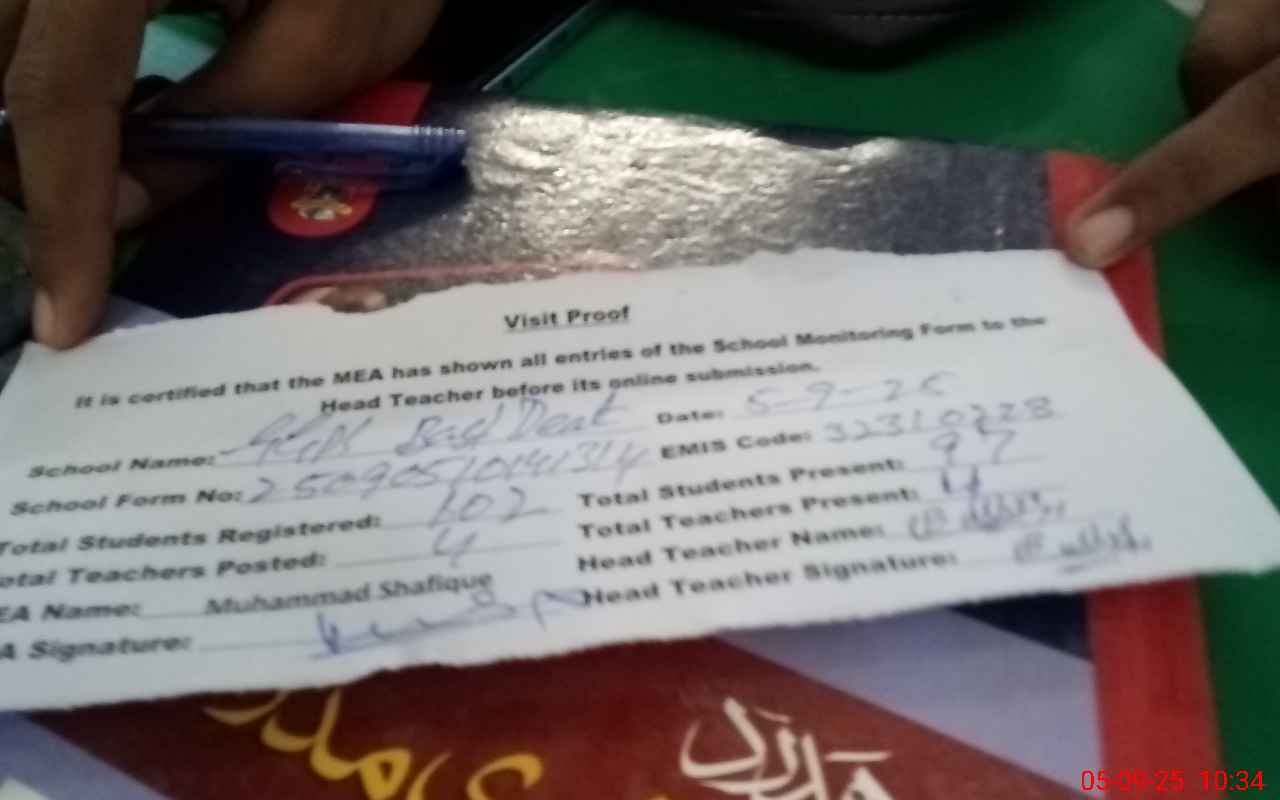 Visit Proof
It is certified that the MEA has shown all entries of the School Monitoring Form to the
Head Teacher before its online submission.
School Name: Date: 5-9-25
School Form No: 25090510141314 EMIS Code: 32310228
Total Students Registered: 102 Total Students Present: 97
otal Teachers Posted: 4 Total Teachers Present: 4
EA Name: Muhammad Shafique Head Teacher Name:
A Signature: Head Teacher Signature:
05-09-25 10:34